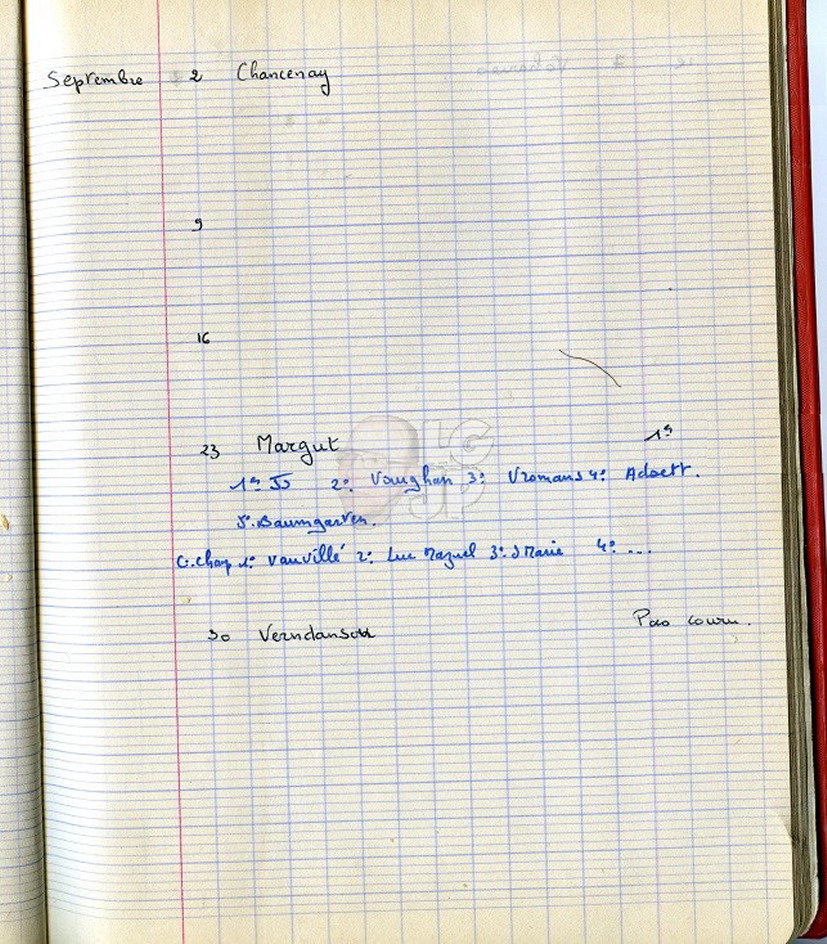 Septembre 2 Chancenay
9
16
23 Margut 1er
1er JJ 2e Vaughan 3e Vromans 4e Adaett.
5e Baumgarten.
C.Champ 1e Vauvillé 2e Luc Mazuel 3e J Marie 4e ...
30 Verndansoul
Pas couru.
LG
JD